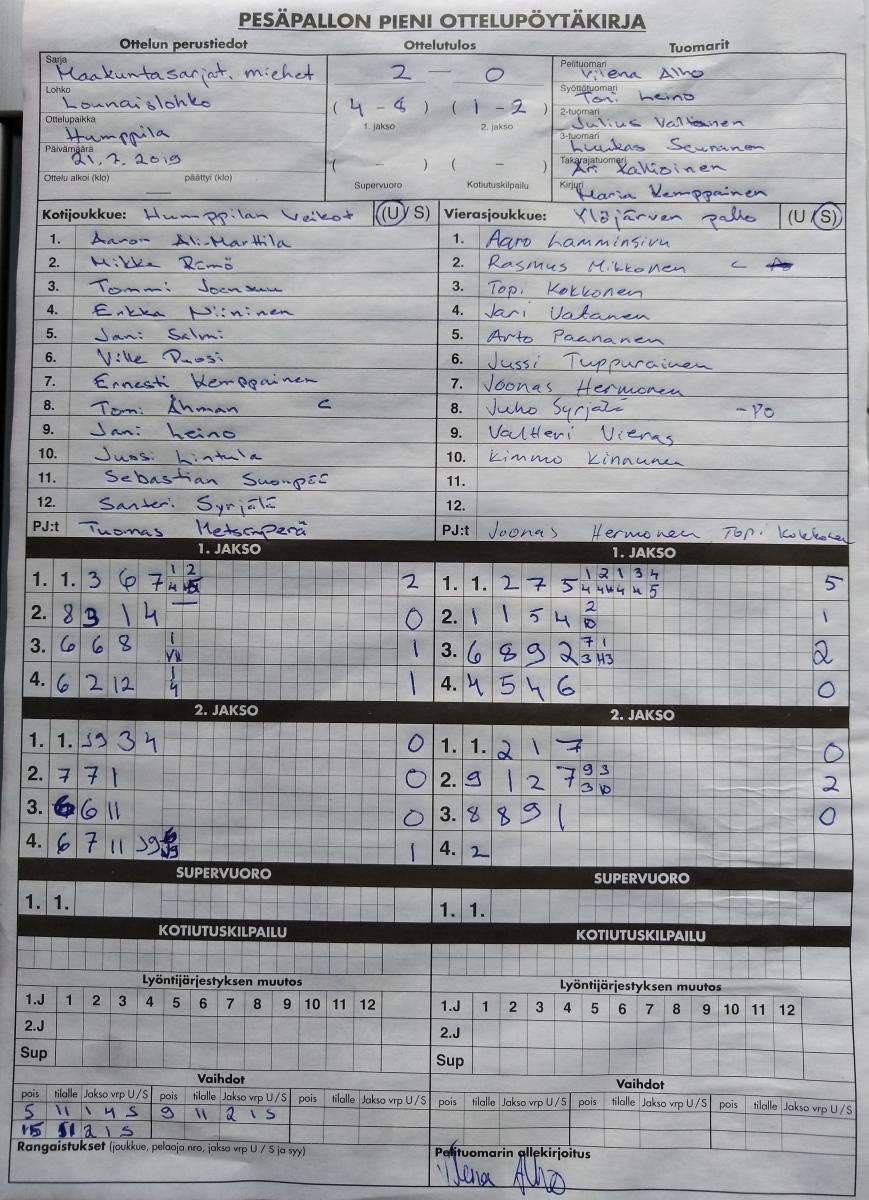 PESÄPALLON PIENI OTTELUPÖYTÄKIRJA
Ottelun perustiedot
Sarja
Maakuntasarjat, miehet
Lohko
Lounaislohko
Ottelupaikka
Humppila
Päivämäärä
21.7.2019
Ottelu alkoi (klo) päättyi (klo)
Ottelutulos
2 — 0
(4 - 8) (1 - 2)
1. jakso 2. jakso
( - ) ( - )
Supervuoro Kotiutuskilpailu
Tuomarit
Pelituomari
Vilena Alho
Syöttötuomari
Toni Leino
2-tuomari
Julius Valtanen
3-tuomari
Luukas Seuranen
Takarajatuomari
Ari Kallioinen
Kirjuri
Maria Kemppainen
Kotijoukkue: Humppilan Veikot (U / S)
1. Aaron Ali-Marttila
2. Mikko Rämö
3. Tommi Joensuu
4. Erkka Niininen
5. Jani Salmi
6. Ville Ruosi
7. Ernesti Kemppainen
8. Tomi Åhman C
9. Jani Leino
10. Jussi Lintula
11. Sebastian Suonpää
12. Santeri Syrjälä
PJ:t Tuomas Metsänperä
Vierasjoukkue: Ylöjärven pallo (U / S)
1. Aaro Lamminsivu
2. Rasmus Mikkonen C
3. Topi Kokkonen
4. Jari Vatanen
5. Arto Paananen
6. Jussi Tuppurainen
7. Joonas Hermonen
8. Juho Syrjälä - PO
9. Valtteri Vieras
10. Kimmo Kinnunen
11.
12.
PJ:t Joonas Hermonen Topi Kokkonen
1. JAKSO
1. 1. 3 6 7 1 2 2
2. 8 3 1 4 0
3. 6 6 8 1 1
4. 6 2 12 1 4 1
1. JAKSO
1. 1. 2 7 5 1 2 1 3 4 5
2. 1 1 5 4 2 10 1
3. 6 8 9 2 7 1 2
4. 4 5 4 6 0
2. JAKSO
1. 1. 3 4 0
2. 7 7 1 0
3. 6 6 11 0
4. 6 7 11 1
2. JAKSO
1. 1. 2 1 7 0
2. 9 1 2 7 9 3 3 10 2
3. 8 8 9 1 0
4. 2
SUPERVUORO
1. 1.
SUPERVUORO
1. 1.
KOTIUTUSKILPAILU
KOTIUTUSKILPAILU
Lyöntijärjestyksen muutos
1.J 1 2 3 4 5 6 7 8 9 10 11 12
2.J
Sup
Lyöntijärjestyksen muutos
1.J 1 2 3 4 5 6 7 8 9 10 11 12
2.J
Sup
Vaihdot
pois tilalle Jakso vrp U / S pois tilalle Jakso vrp U / S pois tilalle Jakso vrp U / S
5 11 1 4 S 9 11 2 1 S
2 1 S
Vaihdot
pois tilalle Jakso vrp U / S pois tilalle Jakso vrp U / S pois tilalle Jakso vrp U / S
Rangaistukset (joukkue, pelaaja nro, jakso vrp U / S ja syy)
Pelituomarin allekirjoitus
Vilena Alho